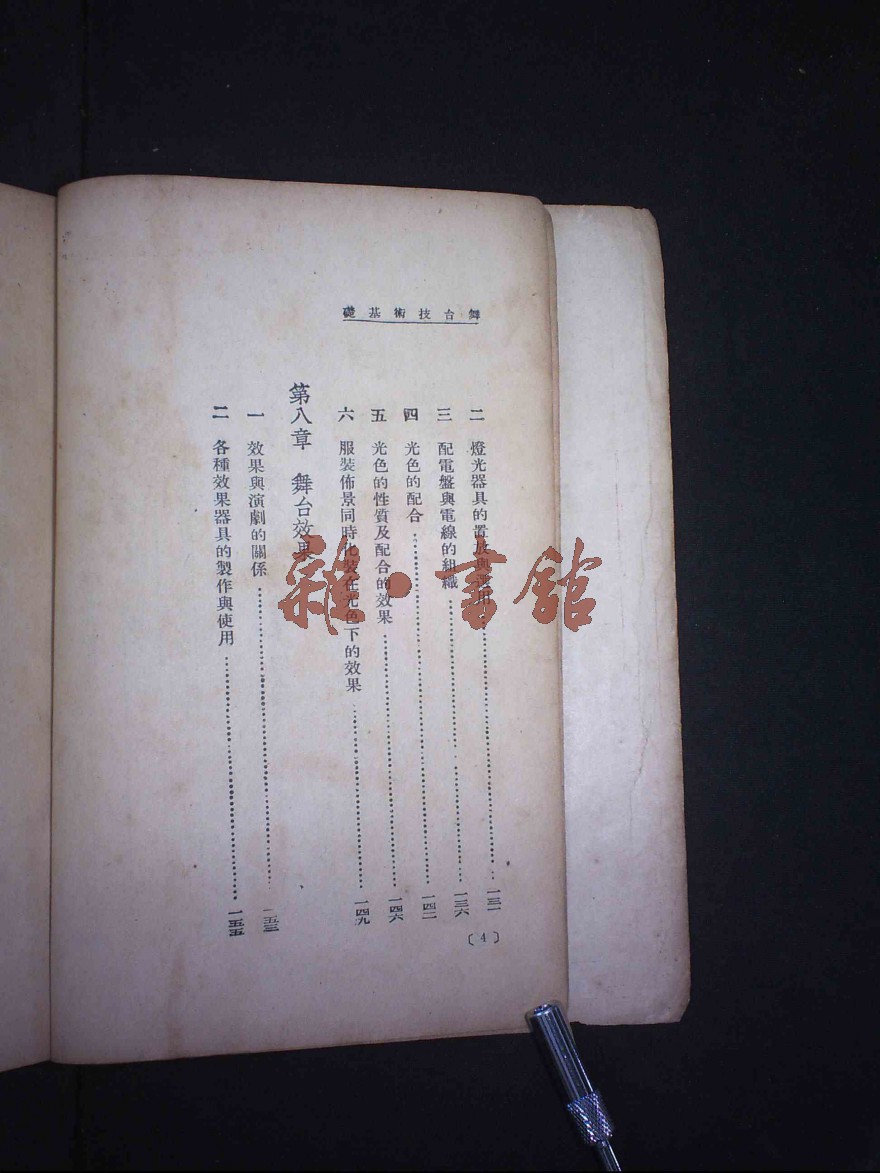 舞台技術基礎
二　燈光器具的置放與運用……一三一
三　配電盤與電線的組織……一三六
四　光色的配合……一四二
五　光色的性質及配合的效果……一四六
六　服裝佈景同時化裝在光色下的效果……一四九
第八章　舞台效果
一　效果與演劇的關係……一五三
二　各種效果器具的製作與使用……一五五
〔4〕
雜·書館